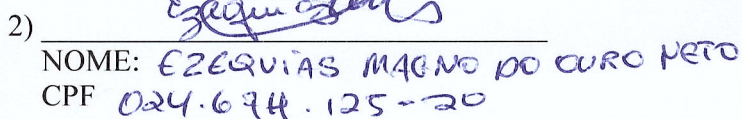 2)
NOME: EZEQUIAS MAGNO DO OURO NETO
CPF 024.694.125-20